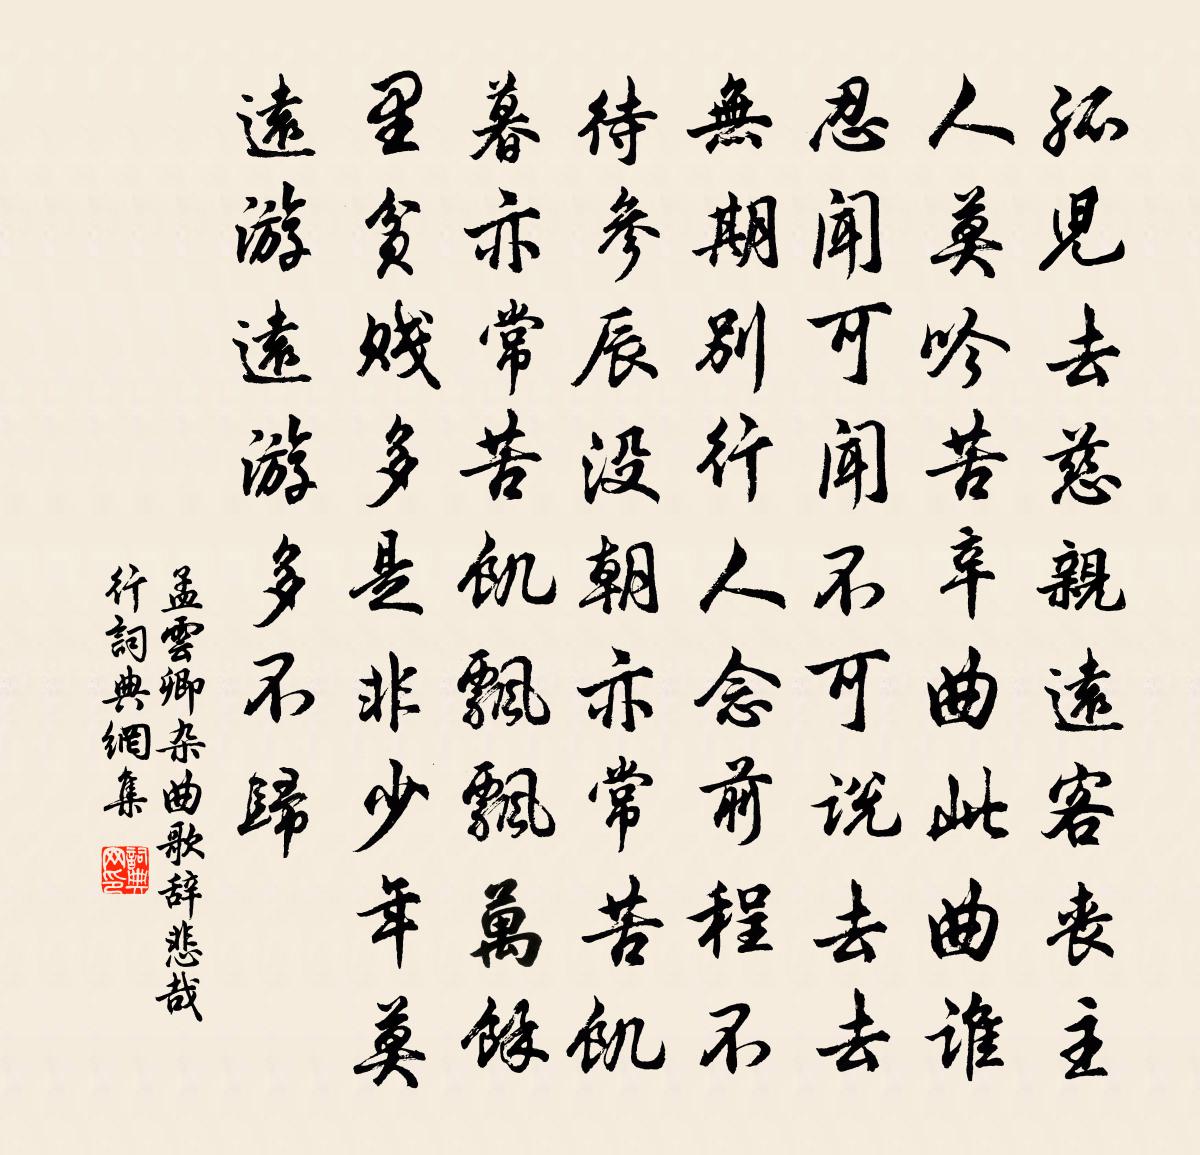 孤兒去慈親遠客喪主
人莫吟苦辛曲此曲誰
忍聞可聞不可說去去
無期別行人念前程不
待參辰没朝亦常苦飢
暮亦常苦飢飄飄萬餘
里貧賤多是非少年莫
遠游遠游多不歸
孟雲卿杂曲歌辞悲哉
行詞典網集
詞典
网印